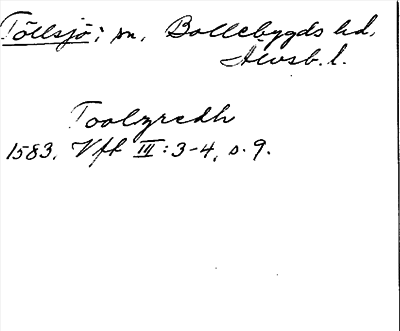 Töllsjö; sn, Bollebygds hd,
Älvsb. l.
Toolzredh
1583. Vft III: 3-4, s. 9.